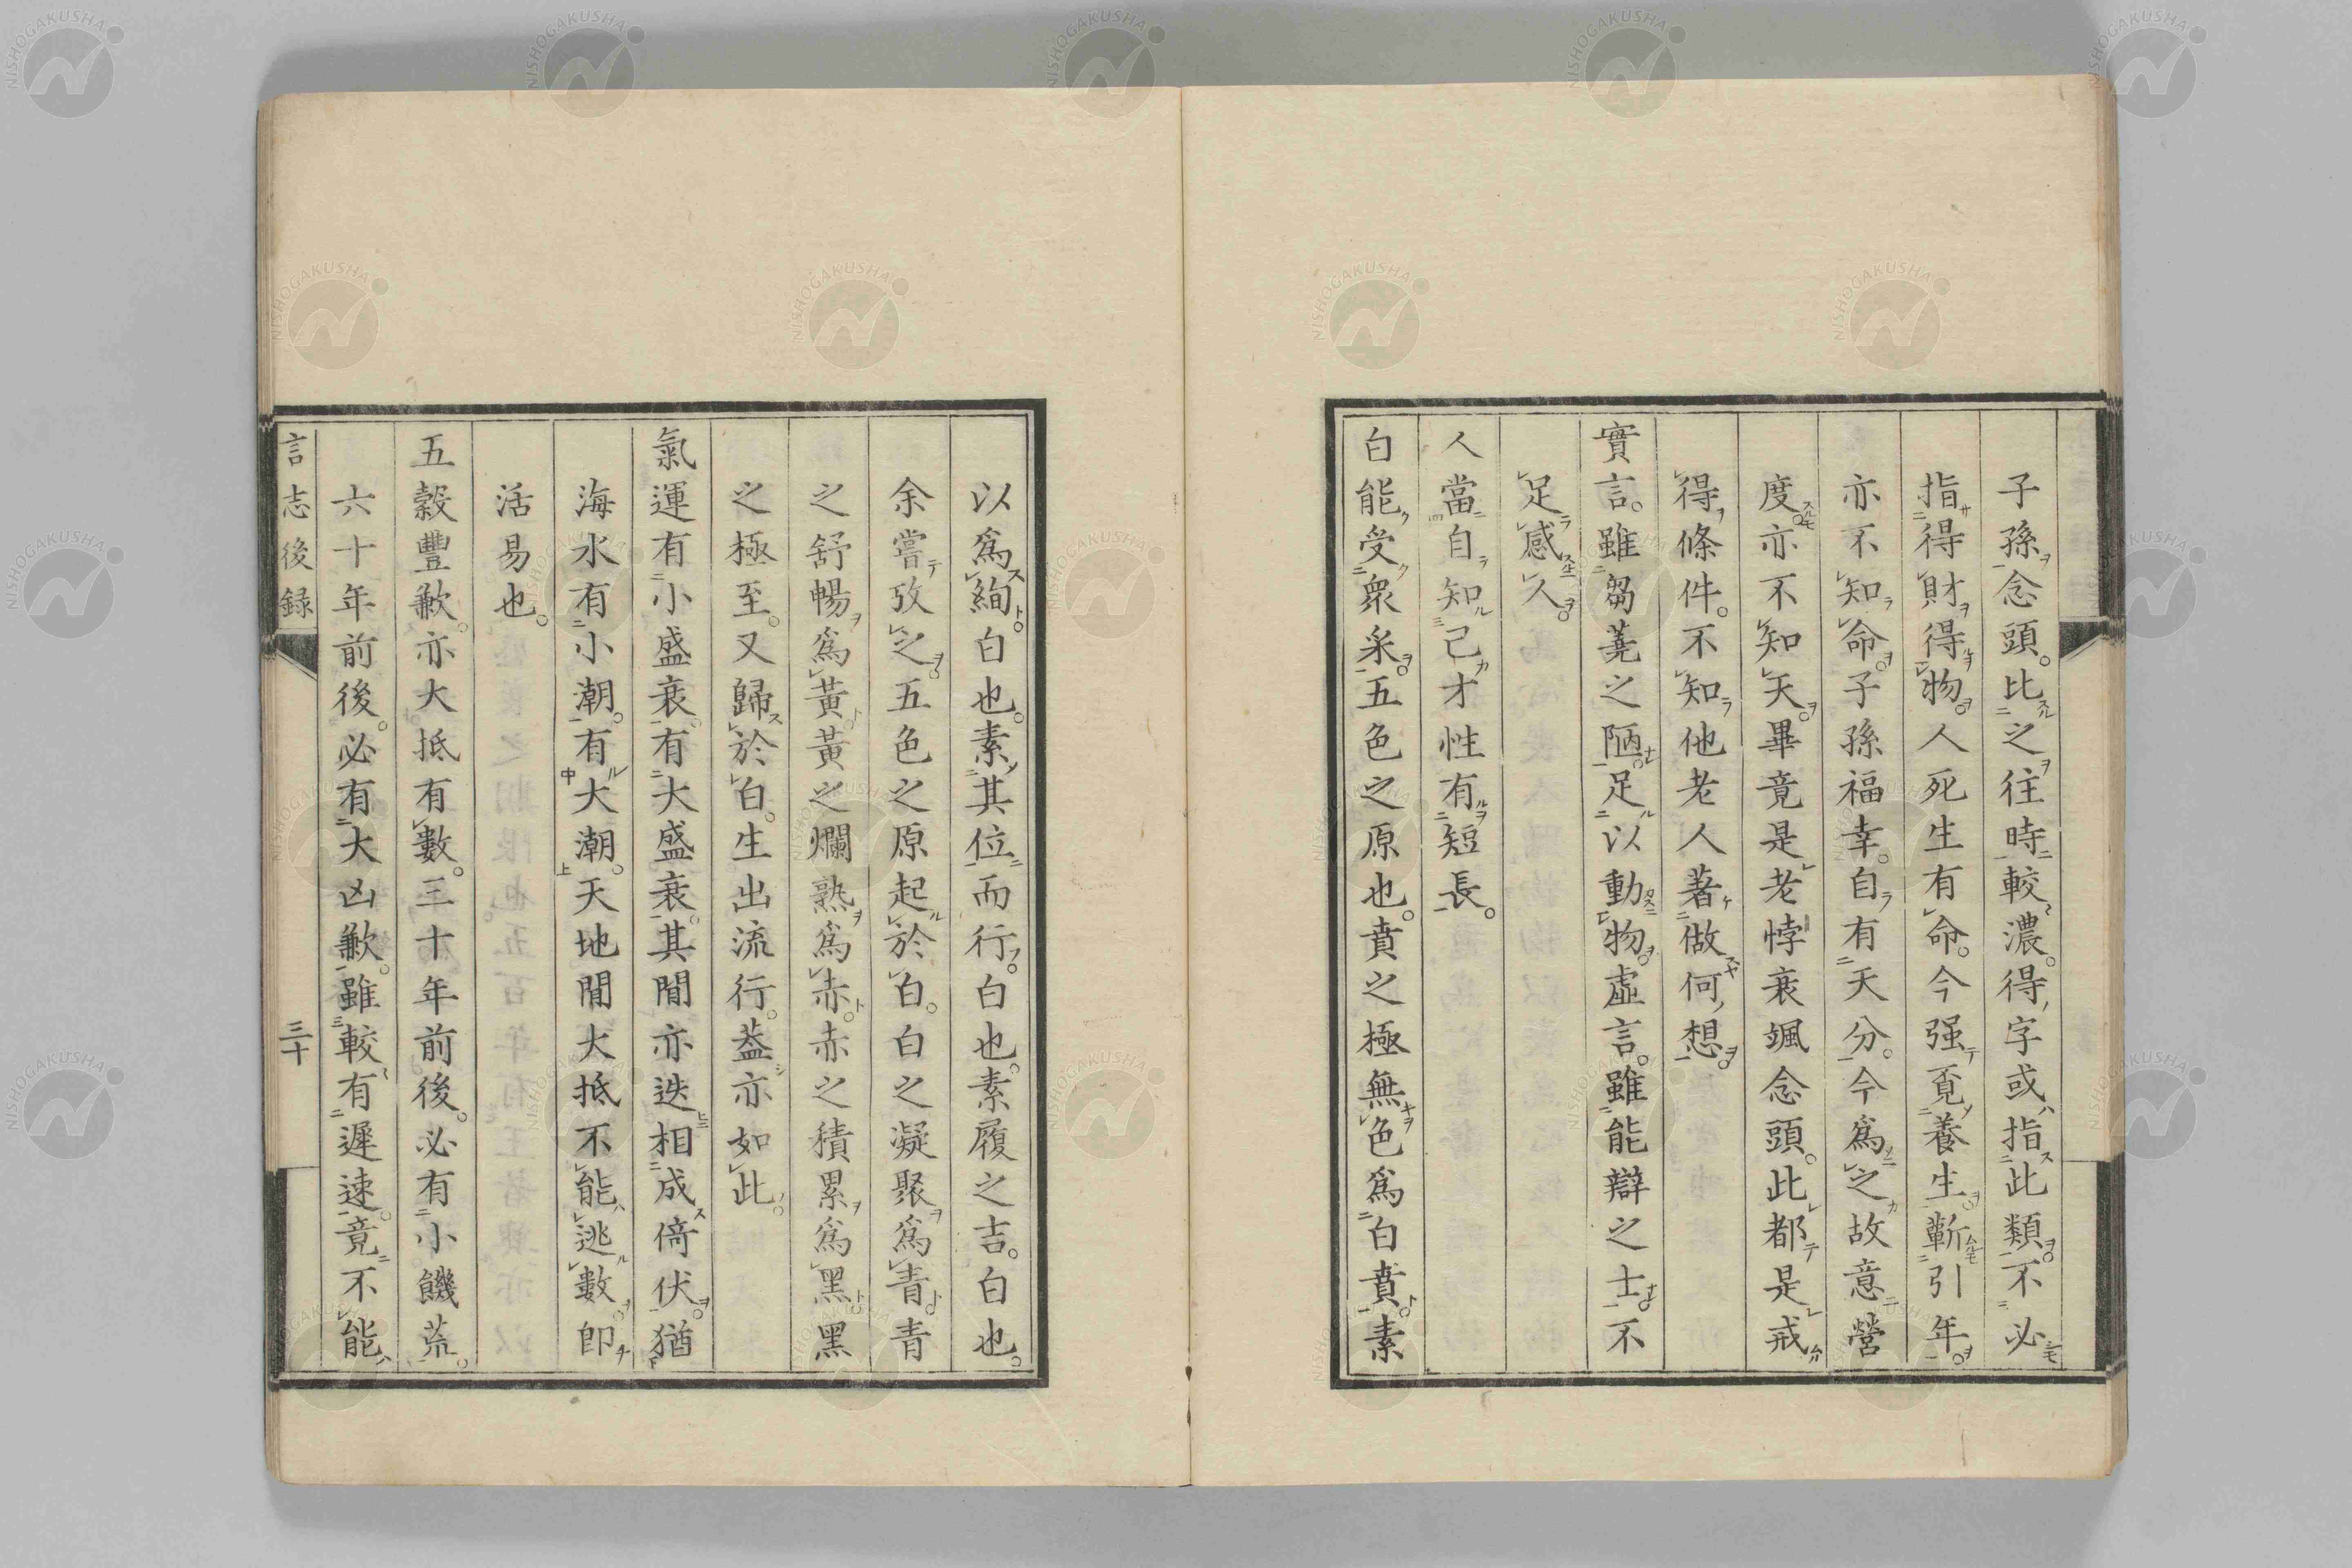 子孫念頭。比之往時較濃。得字或指此類。不必
指得財得物。人死生有命。今强覓養生。蘄引年。
亦不知命。子孫福幸。自有天分。今爲之故意營
度。亦不知天。畢竟是老悖衰颯念頭。此都是戒
得條件。不知他老人著做何想。
實言。雖芻蕘之陋。足以動物。虛言。雖能辯之士。不
足感人。
人當自知己才性有短長。
白能受衆采。五色之原也。賁之極無色爲白賁。素
以爲絢。白也。素其位而行。白也。素履之吉。白也。
余嘗攷之。五色之原起於白。白之凝聚爲青。青
之舒暢爲黃。黃之爛熟爲赤。赤之積累爲黑。黑
之極至。又歸於白。生出流行。葢亦如此。
氣運有小盛衰。有大盛衰。其閒亦迭相成倚伏。猶
海水有小潮。有大潮。天地閒大抵不能逃數。卽
活易也。
五穀豐歉。亦大抵有數。三十年前後。必有小饑荒。
六十年前後。必有大凶歉。雖較有遲速。竟不能
言志後録
三十
NISHOGAKUSHA